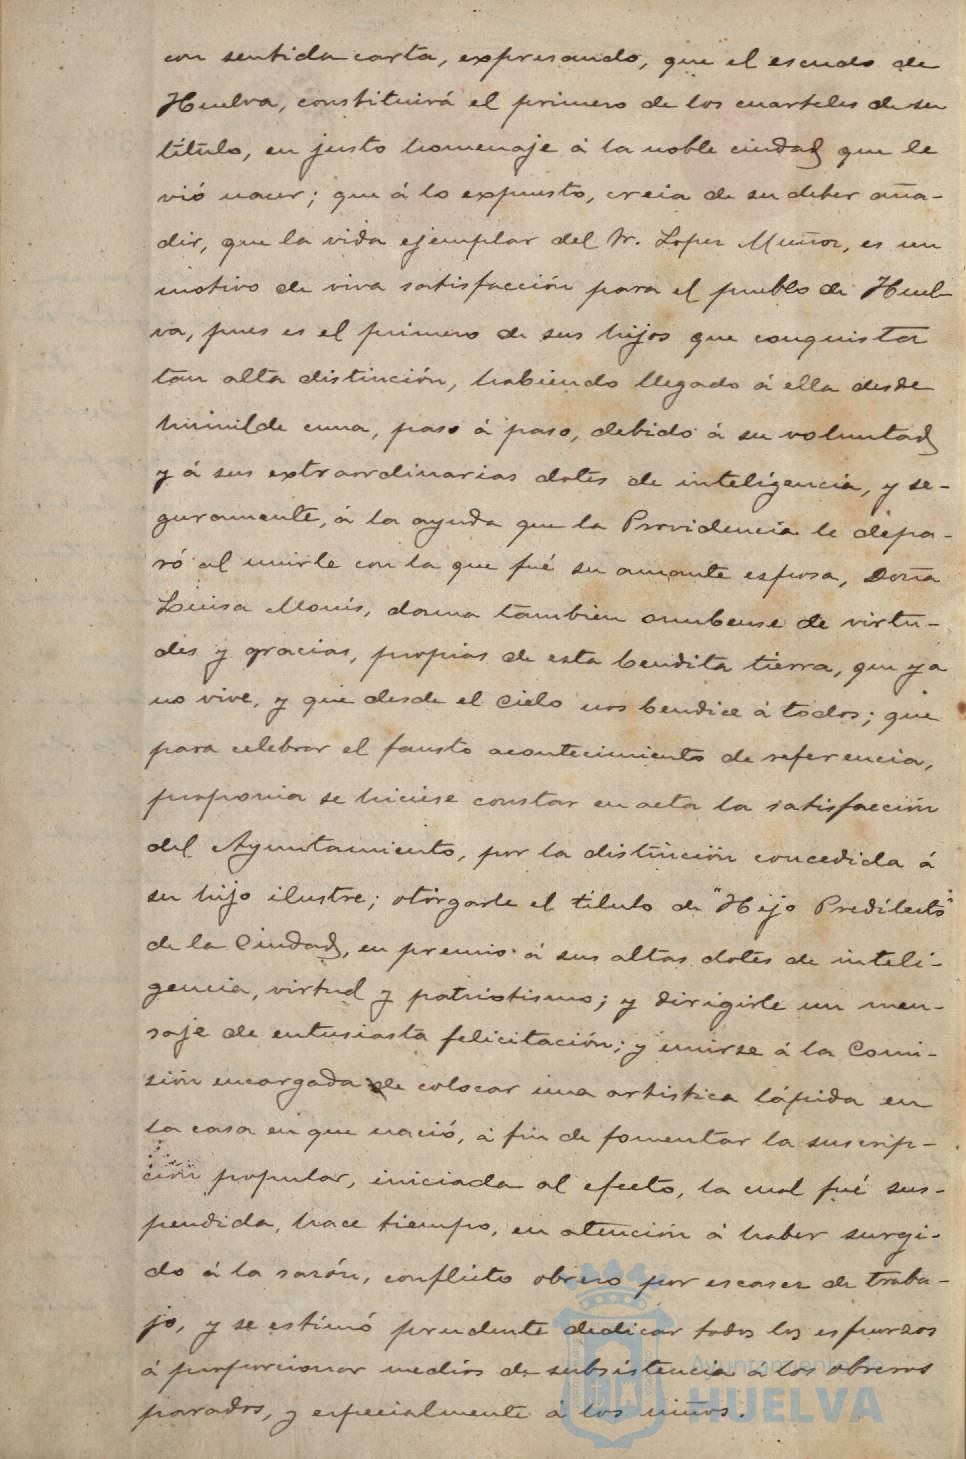 con sentida carta, expresando, que el escudo de
Huelva, constituirá el primero de los cuarteles de su
título, en justo homenaje á la noble ciudad que le
vió nacer; que á lo expuesto, creia de su deber aña-
dir, que la vida ejemplar del Sr. Lopez Muñoz, es un
motivo de viva satisfacción para el pueblo de Huel-
va, pues es el primero de sus hijos que conquista
tan alta distinción, habiendo llegado á ella desde
humilde cuna, paso á paso, debido á su voluntad
y á sus extraordinarias dotes de inteligencia, y se-
guramente, á la ayuda que la Providencia le depa-
ró al unirle con la que fué su amante esposa, Doña
Luisa Monis, dama tambien onubense de virtu-
des y gracias, propias de esta bendita tierra, que ya
no vive, y que desde el Cielo nos bendice á todos; que
para celebrar el fausto acontecimiento de referencia,
proponia se hiciese constar en acta la satisfacción
del Ayuntamiento, por la distinción concedida á
su hijo ilustre; otorgarle el título de "Hijo Predilecto"
de la Ciudad, en premio á sus altas dotes de inteli-
gencia, virtud y patriotismo; y dirigirle un men-
saje de entusiasta felicitación; y unirse á la Comi-
sión encargada de colocar una artistica lápida en
la casa en que nació, á fin de fomentar la suscrip-
ción popular, iniciada al efecto, la cual fué sus-
pendida, hace tiempo, en atención á haber surgi-
do á la sazón, conflicto obrero por escasez de traba-
jo, y se estimó prudente dedicar todos los esfuerzos
á proporcionar medios de subsistencia á los obreros
parados, y especialmente á los niños.
Ayuntamiento de
HUELVA